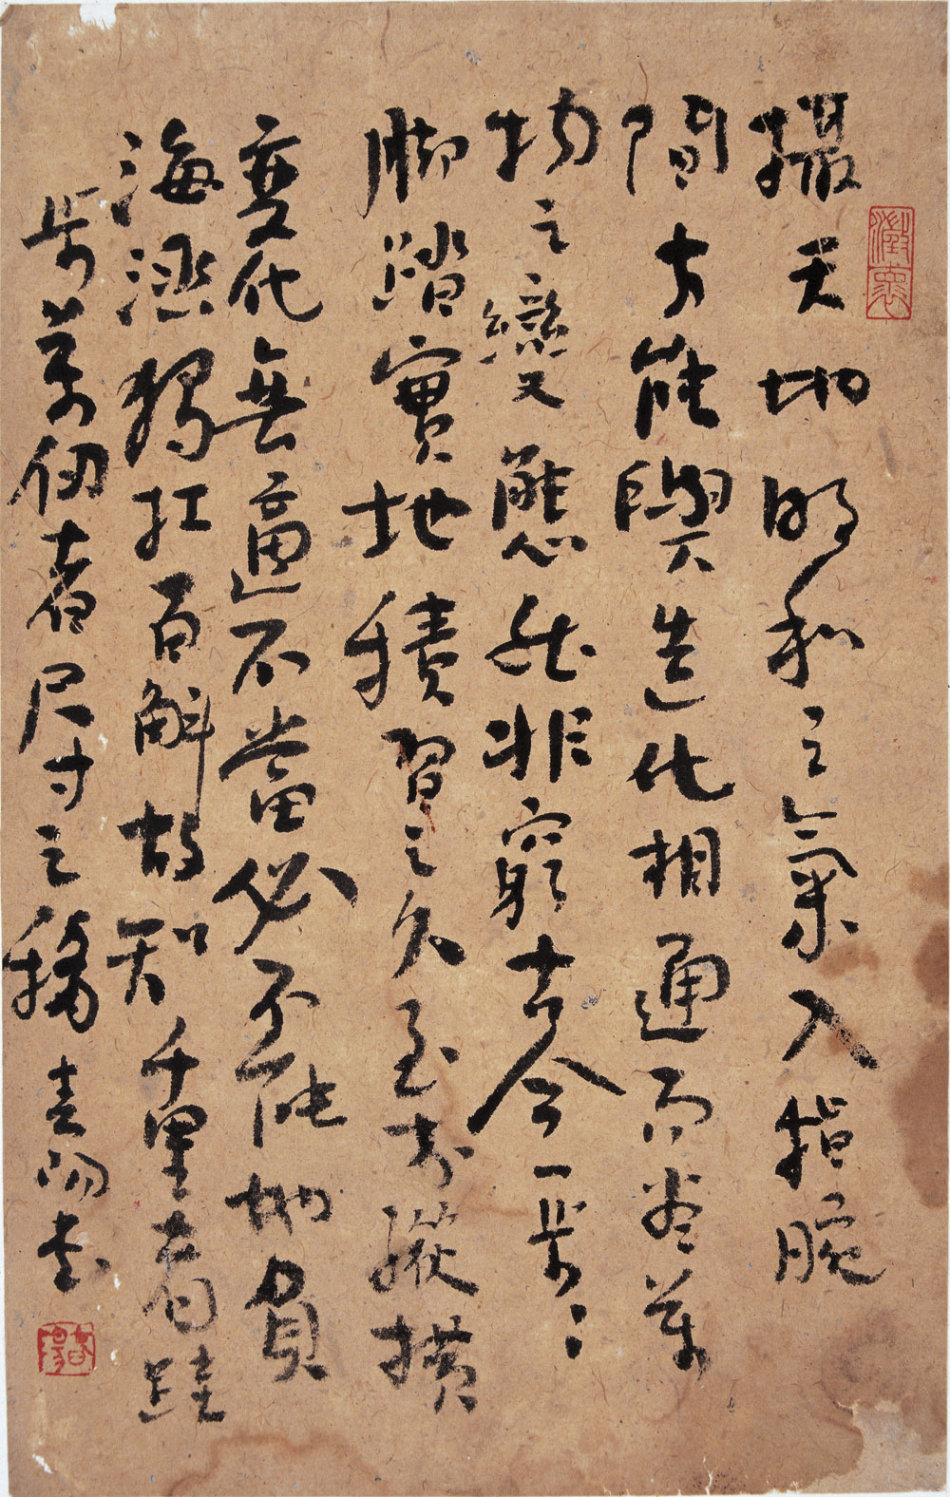 攝天地清和之氣入指腕
間方能與造化相通而盡萬
物之變態然非窮古今一步步
腳踏實地積習之久至於縱橫
變化無適不當必不能地負
海涵獨扛百斛故知千里者跬
步萬仞者尺寸之積 春陽書
澂懷